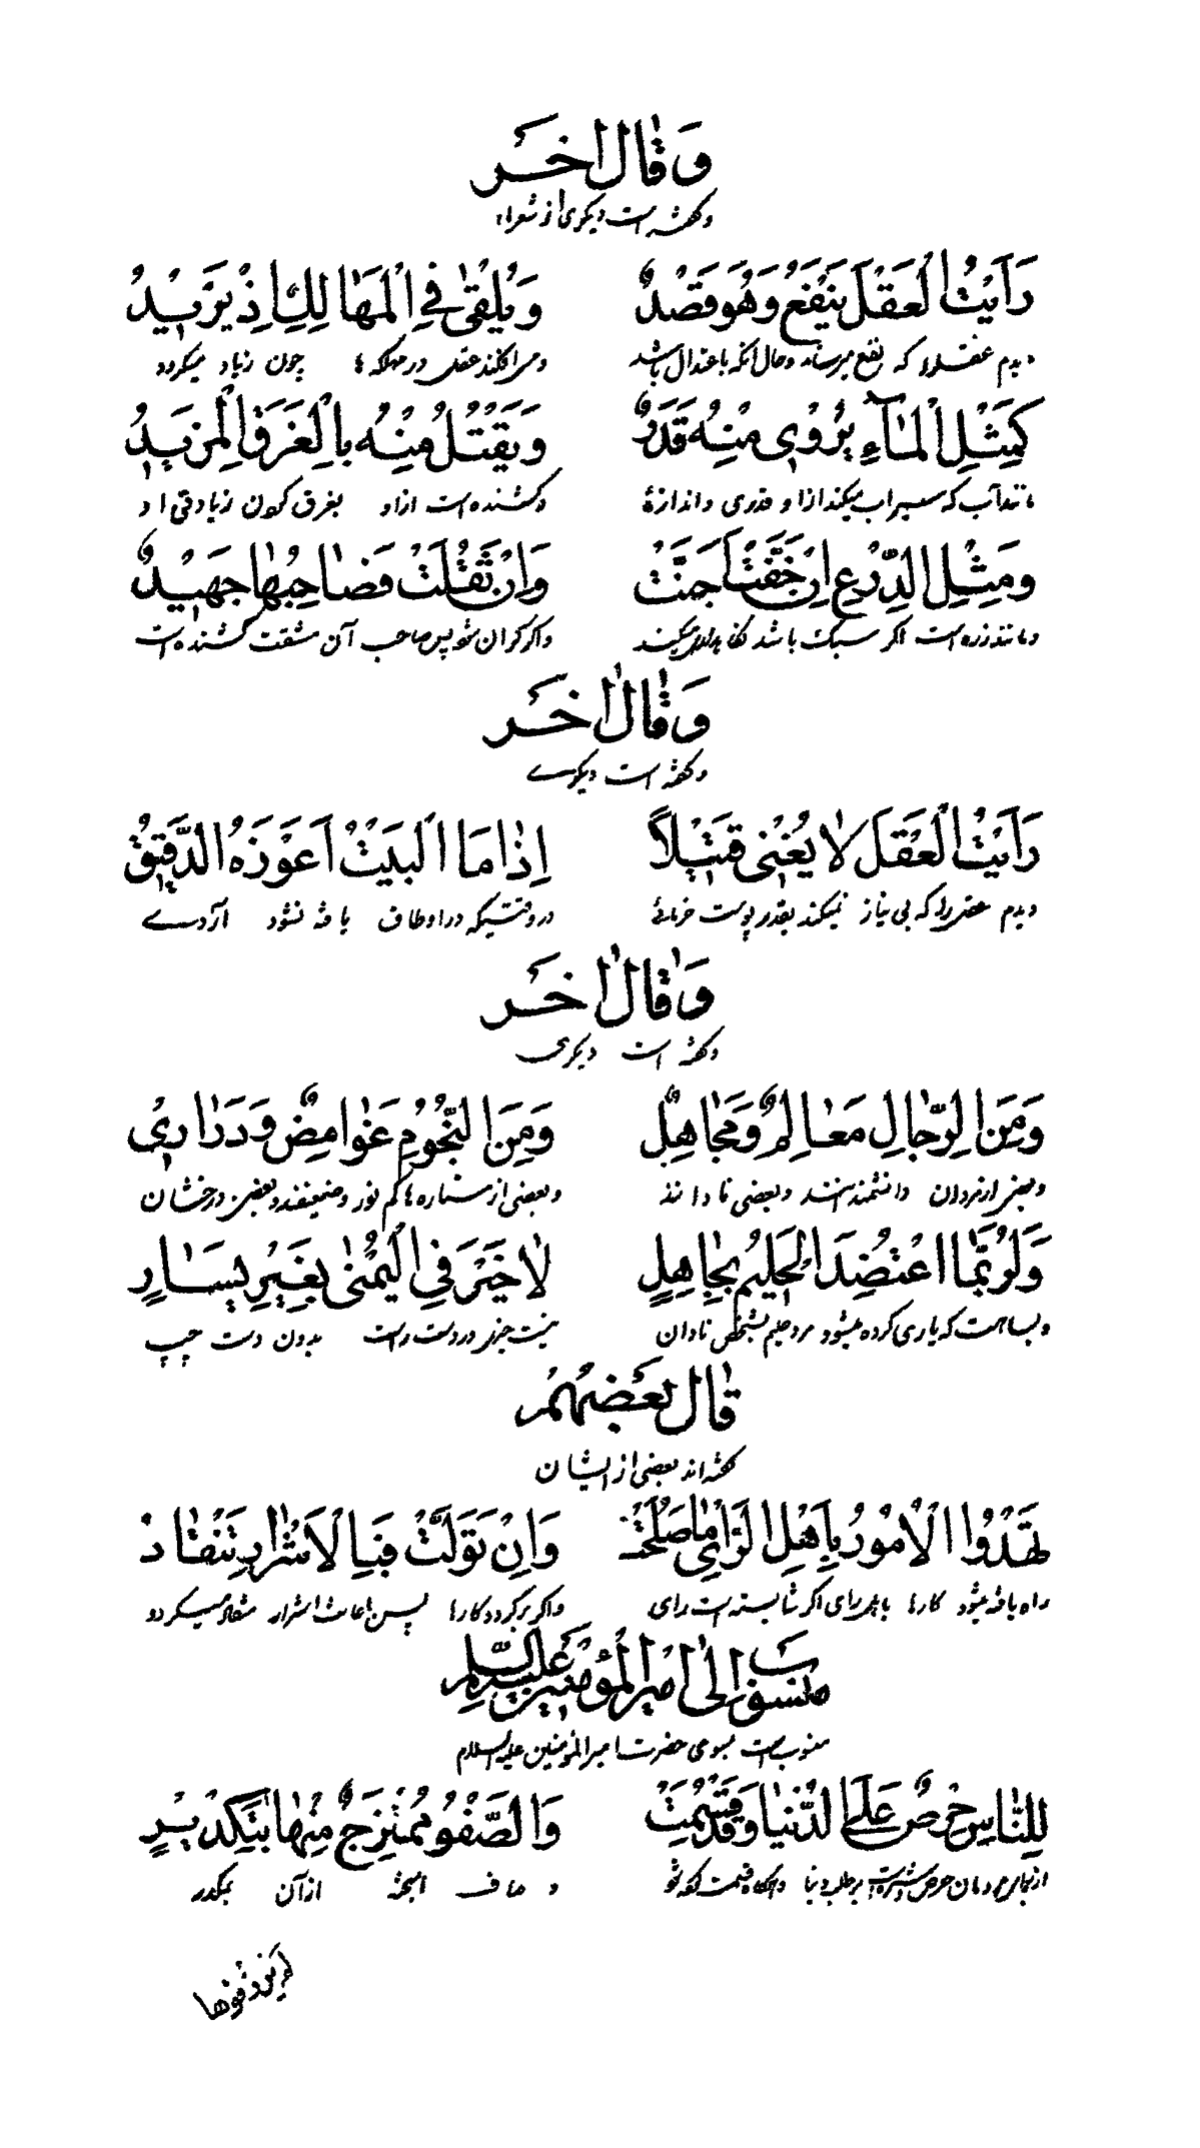 وَقٰالَ اٰخَر
وگفته است دیگری از شعراء
رَاَیْتُ الْعَقْلَ یَنْفَعُ وَهُوَ قَصْدٌ    وَیُلْقٰی فِی الْمَهٰالِكِ اِذْ یَزیدُ
دیدم عقلرا که نفع میرساند و حال آنکه باعتدال باشد    ومی افکند عقل در مهلکه ها چون زیاد میگردد
كَمِثْلِ الْمٰاۤءِ یُرْوی مِنْهُ قَدَرٌ    وَیَقْتُلُ مِنْهُ بِالْغَرَقِ الْمَزیدُ
مانند آب که سیراب میکند از او قدری و اندازهٔ    وکشنده است از او بغرق کردن زیادتی او
وَمِثْلِ الدِّرْعِ اِنْ خَفَّتْ اَجَنَّتْ    وَاِنْ ثَقُلَتْ فَصٰاحِبُهٰا جَهیدٌ
ومانند زره است اگر سبک باشد    واگر گران شود پس صاحب آن مشقت کشنده است
وَقٰالَ اٰخَر
وگفته است دیگرے
رَاَیْتُ الْعَقْلَ لٰا یُغْنی فَتیلًا    اِذٰا مَا الْبَیْتُ اَعْوَزَهُ الدَّقیقُ
دیدم عقل را که بی نیاز نمیکند بقدر پوست خرمائی    در وقتیکه در اوطاق یافته نشود آردے
وَقٰالَ اٰخَر
وگفته است دیگری
وَمِنَ الرِّجٰالِ مَعٰالِمٌ وَمَجٰاهِلٌ    وَمِنَ النُّجُومِ غَوٰامِضٌ وَدَرٰاری
وبعضی از مردان دانشمند هستند وبعضی نادانند    وبعضی از ستاره ها کم نور وضعیفند وبعضی درخشان
وَلَرُبَّمَا اعْتُضِدَ الْحَلیمُ بِجٰاهِلٍ    لٰا خَیْرَ فِی الْیُمْنٰی بِغَیْرِ یَسٰارٍ
وبسا هست که یاری کرده میشود مرد حلیم بشخص نادان    نیست خیر در دست راست بدون دست چپ
قٰالَ بَعْضُهُمْ
گفته اند بعضی از ایشان
تَهْدُوا الْاُمُورُ بِاَهْلِ الرَّاْیِ مٰا صَلُحَتْ    وَاِنْ تَوَلَّتْ فَبِالْاَشْرٰارِ تَنْقٰادُ
راه یافته میشود کارها باهل رای اگر شایسته است رای    واگر برگردد کارها پس باعانت اشرار منقاد میگردد
منسوب اِلٰی امیر المؤمنین علیه السلام
منسوبست بسوی حضرت امیر المؤمنین علیه السلام
لِلنّٰاسِ حِرْصٌ عَلَی الدُّنْیٰا وَقَدْ قُسِمَتْ    وَالصَّفْوُ مُمْتَزِجٌ مِنْهٰا بِتَكْدیرٍ
و صاف آمیخته از آن بکدر